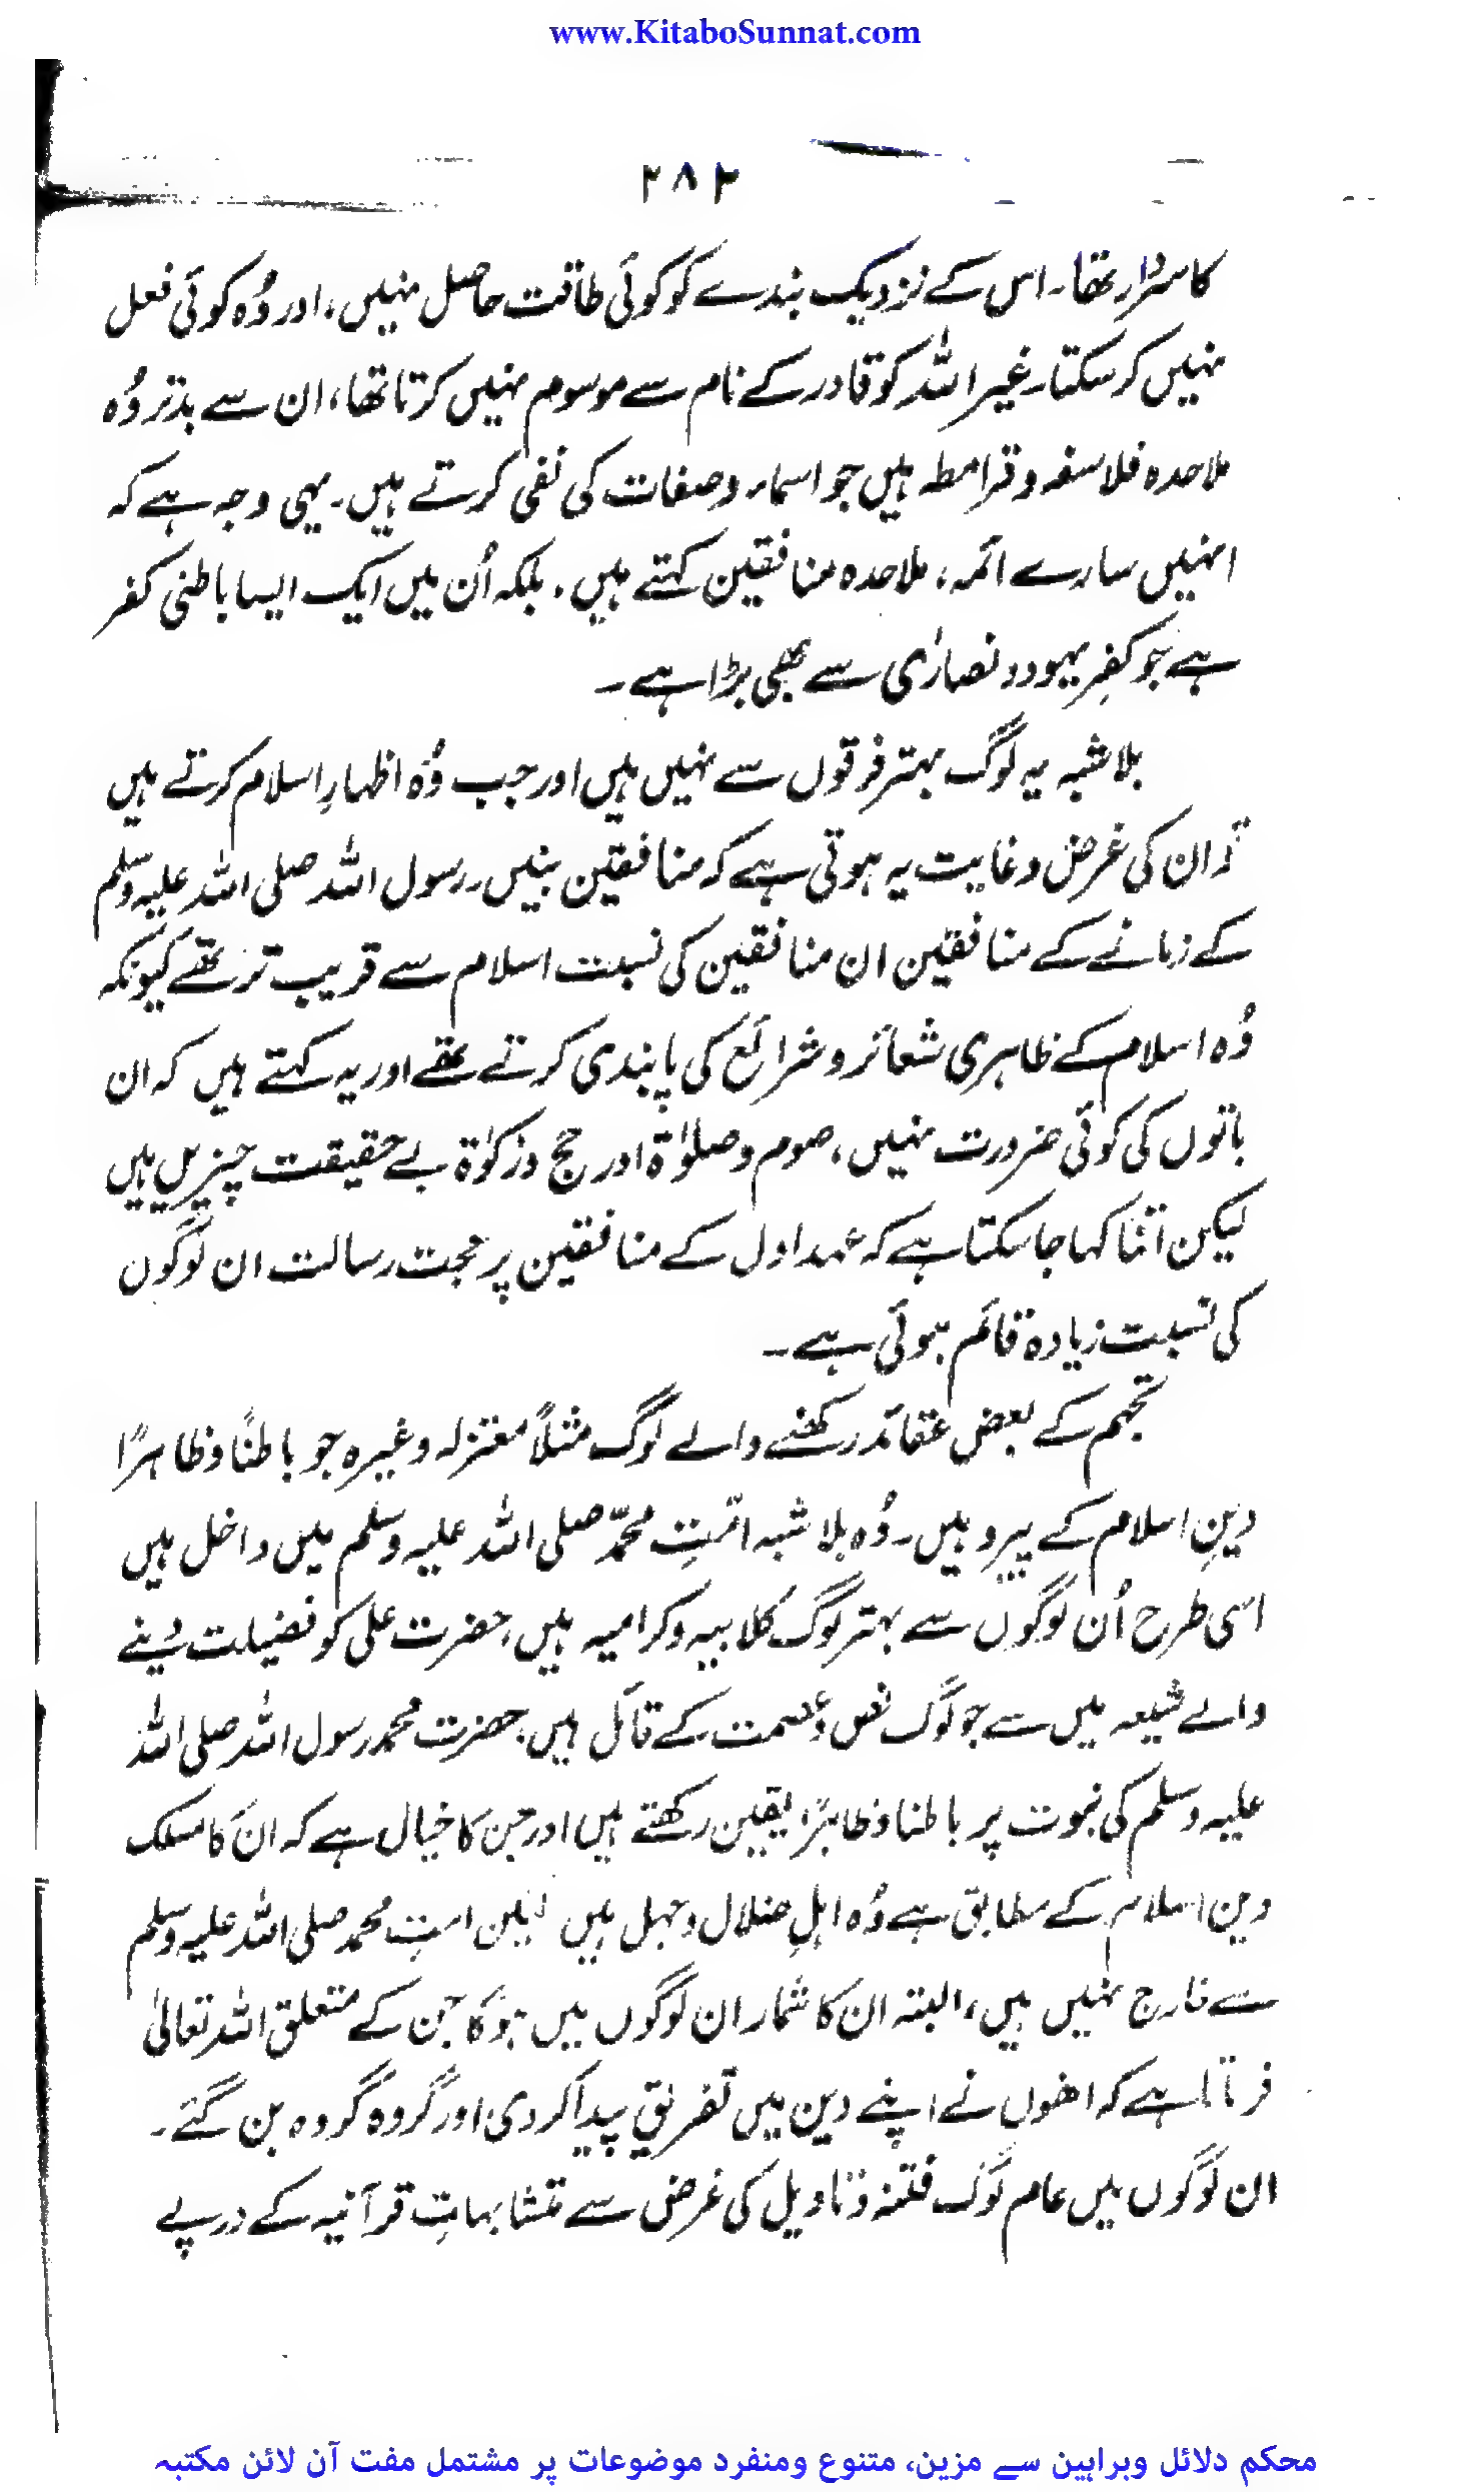 www.KitaboSunnat.com
۲۸۲
کا سردار تھا۔ اس کے نزدیک بندے کو کوئی طاقت حاصل نہیں، اور وُہ کوئی فعل
نہیں کر سکتا۔ غیر اللہ کو قادر کے نام سے موسوم نہیں کرتا تھا، ان سے بدتر وُہ
ملاحدہ فلاسفہ و قرامطہ ہیں جو اسماء و صفات کی نفی کرتے ہیں۔ یہی وجہ ہے کہ
انہیں سارے ائمہ، ملاحدہ منافقین کہتے ہیں۔ بلکہ اُن میں ایک ایسا باطنی کفر
ہے جو کفرِ یہود و نصارٰی سے بھی بڑا ہے۔
بلا شبہ یہ لوگ بہتر فرقوں سے نہیں ہیں اور جب وُہ اظہارِ اسلام کرتے ہیں
تو ان کی غرض و غایت یہ ہوتی ہے کہ منافقین بنیں۔ رسول اللہ صلی اللہ علیہ وسلم
کے زمانے کے منافقین ان منافقین کی نسبت اسلام سے قریب تر تھے کیونکہ
وُہ اسلام کے ظاہری شعائر و شرائع کی پابندی کرتے تھے اور یہ کہتے ہیں کہ ان
باتوں کی کوئی ضرورت نہیں، صوم و صلوٰۃ اور حج و زکوٰۃ بے حقیقت چیزیں ہیں
لیکن اتنا کہا جا سکتا ہے کہ عہد اول کے منافقین پر حجت رسالت ان لوگوں
کی نسبت زیادہ قائم ہوئی ہے۔
تجہم کے بعض عقائد رکھنے والے لوگ مثلاً معتزلہ وغیرہ جو باطناً و ظاہرًا
دینِ اسلام کے پیرو ہیں۔ وُہ بلا شبہ امّتِ محمّد صلی اللہ علیہ وسلم میں داخل ہیں
اسی طرح اُن لوگوں سے بہتر لوگ کلابیہ و کرامیہ ہیں، حضرت علی کو فضیلت دینے
والے شیعہ میں سے جو لوگ نص و عصمت کے قائل ہیں، حضرت محمد رسول اللہ صلی اللہ
علیہ وسلم کی نبوت پر باطنا و ظاہرًا یقین رکھتے ہیں اور جن کا خیال ہے کہ ان کا مسلک
دین اسلام کے مطابق ہے وُہ اہلِ ضلال و جہل ہیں لیکن امتِ محمد صلی اللہ علیہ وسلم
سے خارج نہیں ہیں، البتہ ان کا شمار ان لوگوں میں ہوگا جن کے متعلق اللہ تعالیٰ
فرماتا ہے کہ انھوں نے اپنے دین میں تفریق پیدا کر دی اور گروہ گروہ بن گئے۔
ان لوگوں میں عام لوگ فتنہ و تاویل کی غرض سے متشابہاتِ قرآنیہ کے درپے
محکم دلائل وبراہین سے مزین، متنوع ومنفرد موضوعات پر مشتمل مفت آن لائن مکتبہ